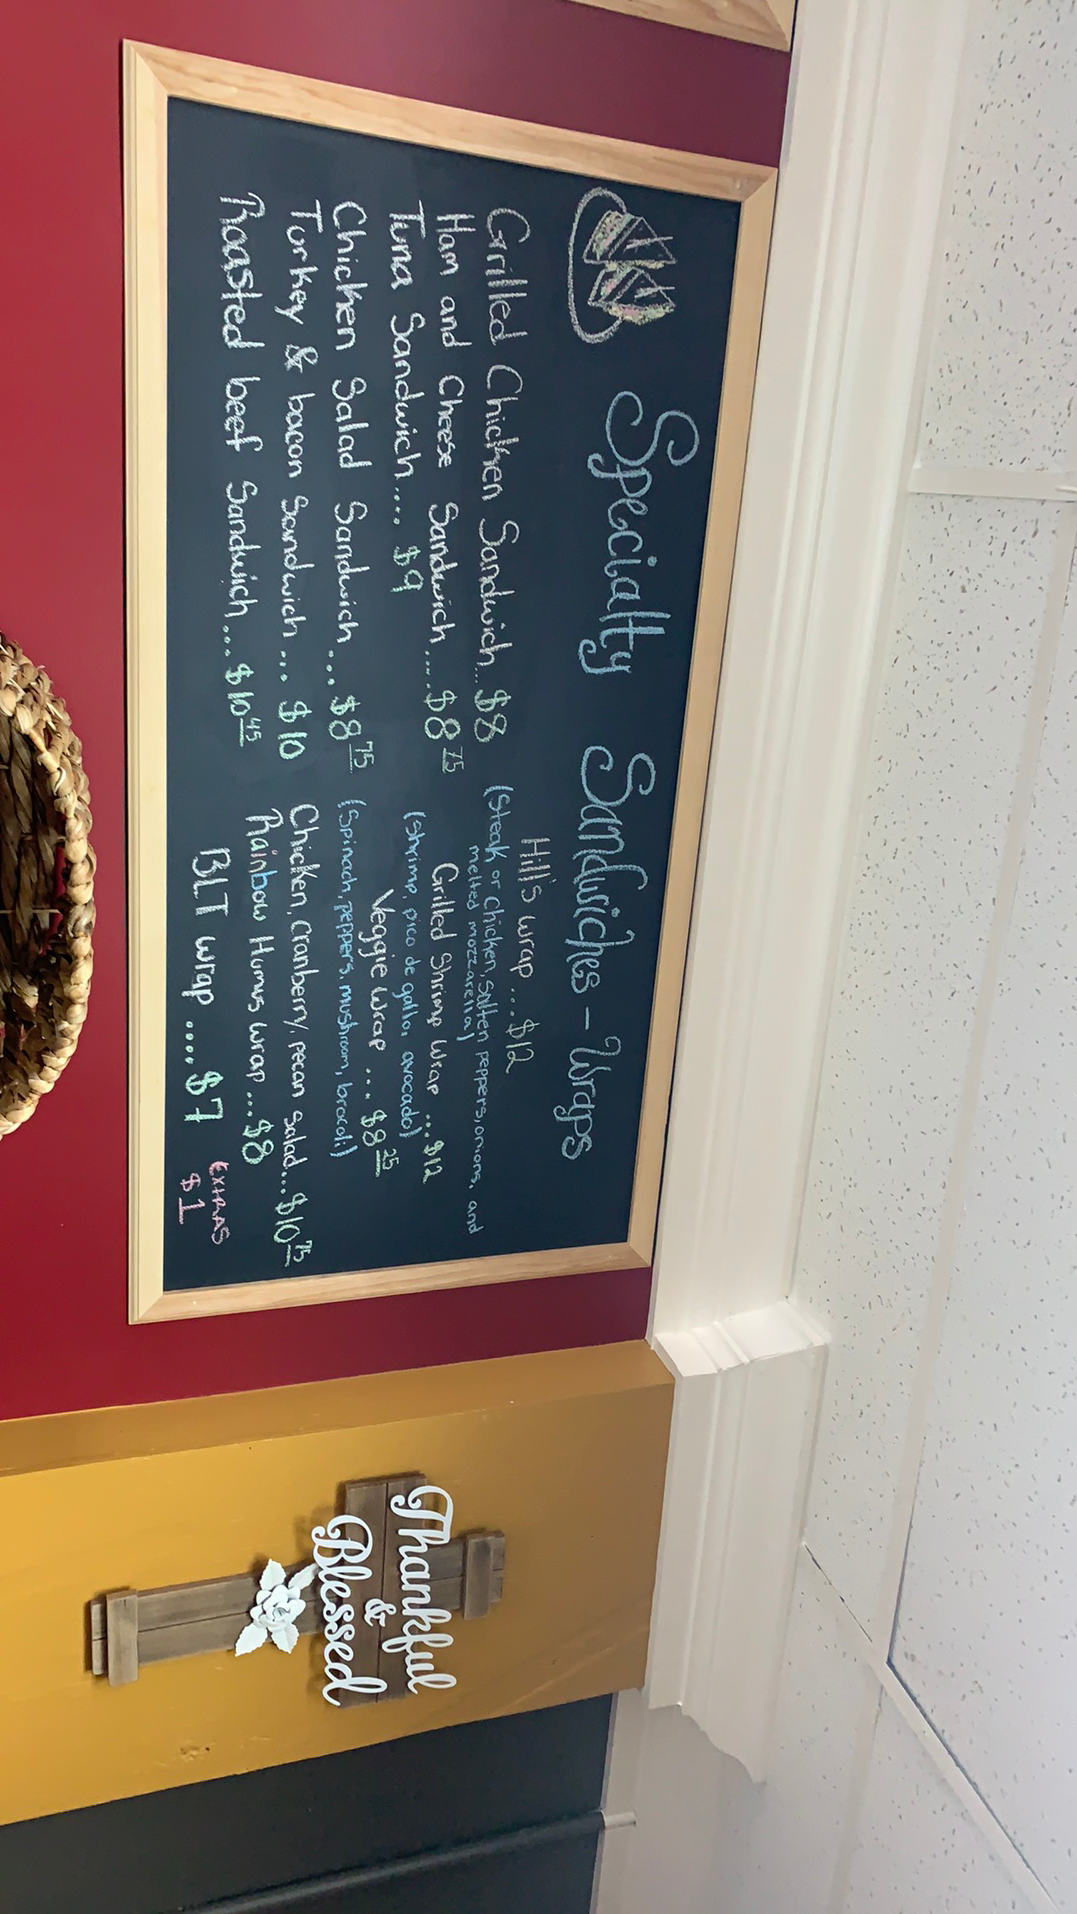 Specialty Sandwiches - Wraps
Grilled Chicken Sandwich... $8
Ham and Cheese Sandwich.... $8 75
Tuna Sandwich.... $9
Chicken Salad Sandwich... $8 75
Turkey & bacon Sandwich... $10
Roasted beef Sandwich... $10 45
Hill's wrap.... $12
(Steak or chicken, Salten peppers, onions, and
melted mozzarella)
Grilled Shrimp Wrap ...$12
(shrimp, pico de gallo, avocado)
Veggie Wrap ... $8 25
(Spinach, peppers, mushroom, brocoli)
Chicken, Cranberry, pecan Salad... $10 75
Rainbow Humus wrap... $8
BLT wrap .... $7
EXTRAS
$1
Thankful
&
Blessed